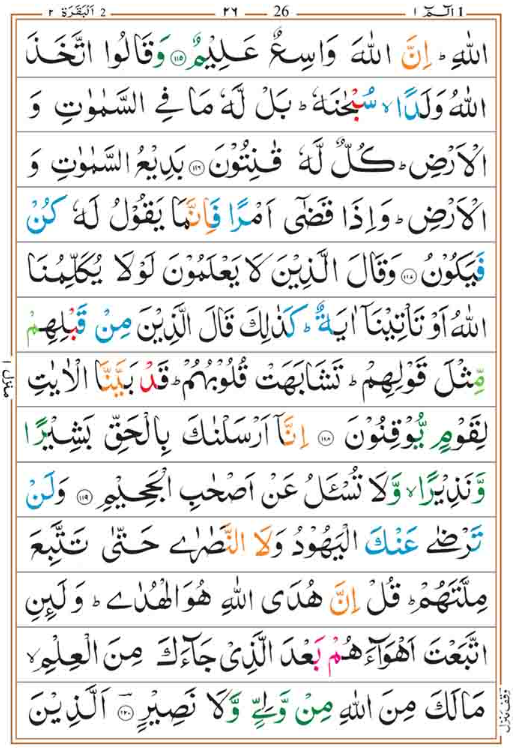 البقرة ٢ 2 ٢٦ 26 الٓمّٓ ١ 1
اللّٰهِ ؕ اِنَّ اللّٰهَ وَاسِعٌ عَلِيْمٌ ﴿۱۱۵﴾ وَقَالُوا اتَّخَذَ
اللّٰهُ وَلَدًا ۙ سُبْحٰنَهٗ ؕ بَلْ لَّهٗ مَا فِي السَّمٰوٰتِ وَ
الْاَرْضِ ؕ كُلٌّ لَّهٗ قٰنِتُوْنَ ﴿۱۱۶﴾ بَدِيْعُ السَّمٰوٰتِ وَ
الْاَرْضِ ؕ وَاِذَا قَضٰٓى اَمْرًا فَاِنَّمَا يَقُوْلُ لَهٗ كُنْ
فَيَكُوْنُ ﴿۱۱۷﴾ وَقَالَ الَّذِيْنَ لَا يَعْلَمُوْنَ لَوْلَا يُكَلِّمُنَا
اللّٰهُ اَوْ تَاْتِيْنَآ اٰيَةٌ ؕ كَذٰلِكَ قَالَ الَّذِيْنَ مِنْ قَبْلِهِمْ
مِّثْلَ قَوْلِهِمْ ؕ تَشَابَهَتْ قُلُوْبُهُمْ ؕ قَدْ بَيَّنَّا الْاٰيٰتِ
لِقَوْمٍ يُّوْقِنُوْنَ ﴿۱۱۸﴾ اِنَّآ اَرْسَلْنٰكَ بِالْحَقِّ بَشِيْرًا
وَّنَذِيْرًا ۙ وَّلَا تُسْـَٔلُ عَنْ اَصْحٰبِ الْجَحِيْمِ ﴿۱۱۹﴾ وَلَنْ
تَرْضٰى عَنْكَ الْيَهُوْدُ وَلَا النَّصٰرٰى حَتّٰى تَتَّبِعَ
مِلَّتَهُمْ ؕ قُلْ اِنَّ هُدَى اللّٰهِ هُوَ الْهُدٰى ؕ وَلَئِنِ
اتَّبَعْتَ اَهْوَآءَهُمْ بَعْدَ الَّذِيْ جَآءَكَ مِنَ الْعِلْمِ ۙ
مَا لَكَ مِنَ اللّٰهِ مِنْ وَّلِيٍّ وَّلَا نَصِيْرٍ ﴿۱۲۰﴾ اَلَّذِيْنَ
منزل ١
وقف منزل